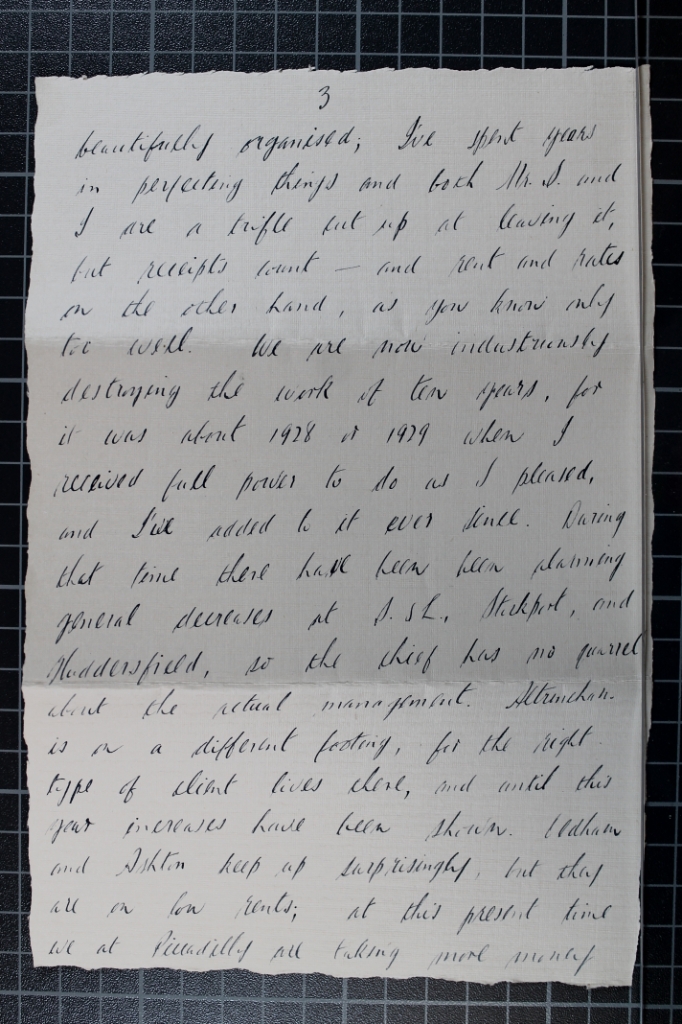 3
beautifully organised; I've spent years
in perfecting things and both Mr. S. and
I are a trifle cut up at leaving it,
but receipts count — and rent and rates
on the other hand, as you know only
too well. We are now industriously
destroying the work of ten years, for
it was about 1928 or 1929 when I
received full power to do as I pleased,
and I've added to it ever since. During
that time there have been been alarming
general decreases at S. & L., Stockport, and
Huddersfield, so the chief has no quarrel
about the actual management. Altrincham
is on a different footing, for the right
type of client lives there, and until this
year increases have been shown. Oldham
and Ashton keep up surprisingly, but they
are on low rents; at this present time
we at Piccadilly are taking more money